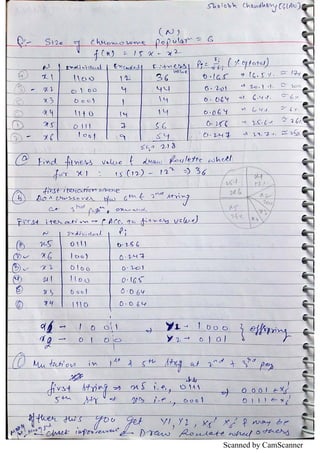 Shailesh Chaudhary (GLAU)
(N)
Q:- Size of chromosome popular = 6
f(x) = 15x - x2
N Individual Decoded Fitness value Pi (% of total)
x1 1100 12 36 0.165 16.5%
x2 0100 4 44 0.201 20.1%
x3 0001 1 14 0.064 6.4%
x4 1110 14 14 0.064 6.4%
x5 0111 7 56 0.256 25.6%
x6 1001 9 54 0.247
218
(a) Find fitness value & draw Roulette wheel
for x1 : 15(12) - 12² => 36
first iteration
(b) Do crossover b/w 6th & 2nd string
onward
First iteration - (Acc. to fitness value)
N Individual Pi
x5 0111 0.256
x6 1001 0.247
x2 0100 0.201
x1 1100 0.165
x3 0001 0.064
x4 1110 0.064
x6 - 1 0 0 1 => Y1 - 1 0 0 0 } offspring
x2 - 0 1 0 0 Y2 - 0 1 0 1
(c) Mutation in 1st & 5th string at 2nd & 3rd pos
first string => x5 i.e., 0111 => 0001
5th x3 i.e., 0001 0111
After this you get Y1, Y2, x5' x3' & may be
check improvement & Draw Roulette wheel others
Scanned by CamScanner